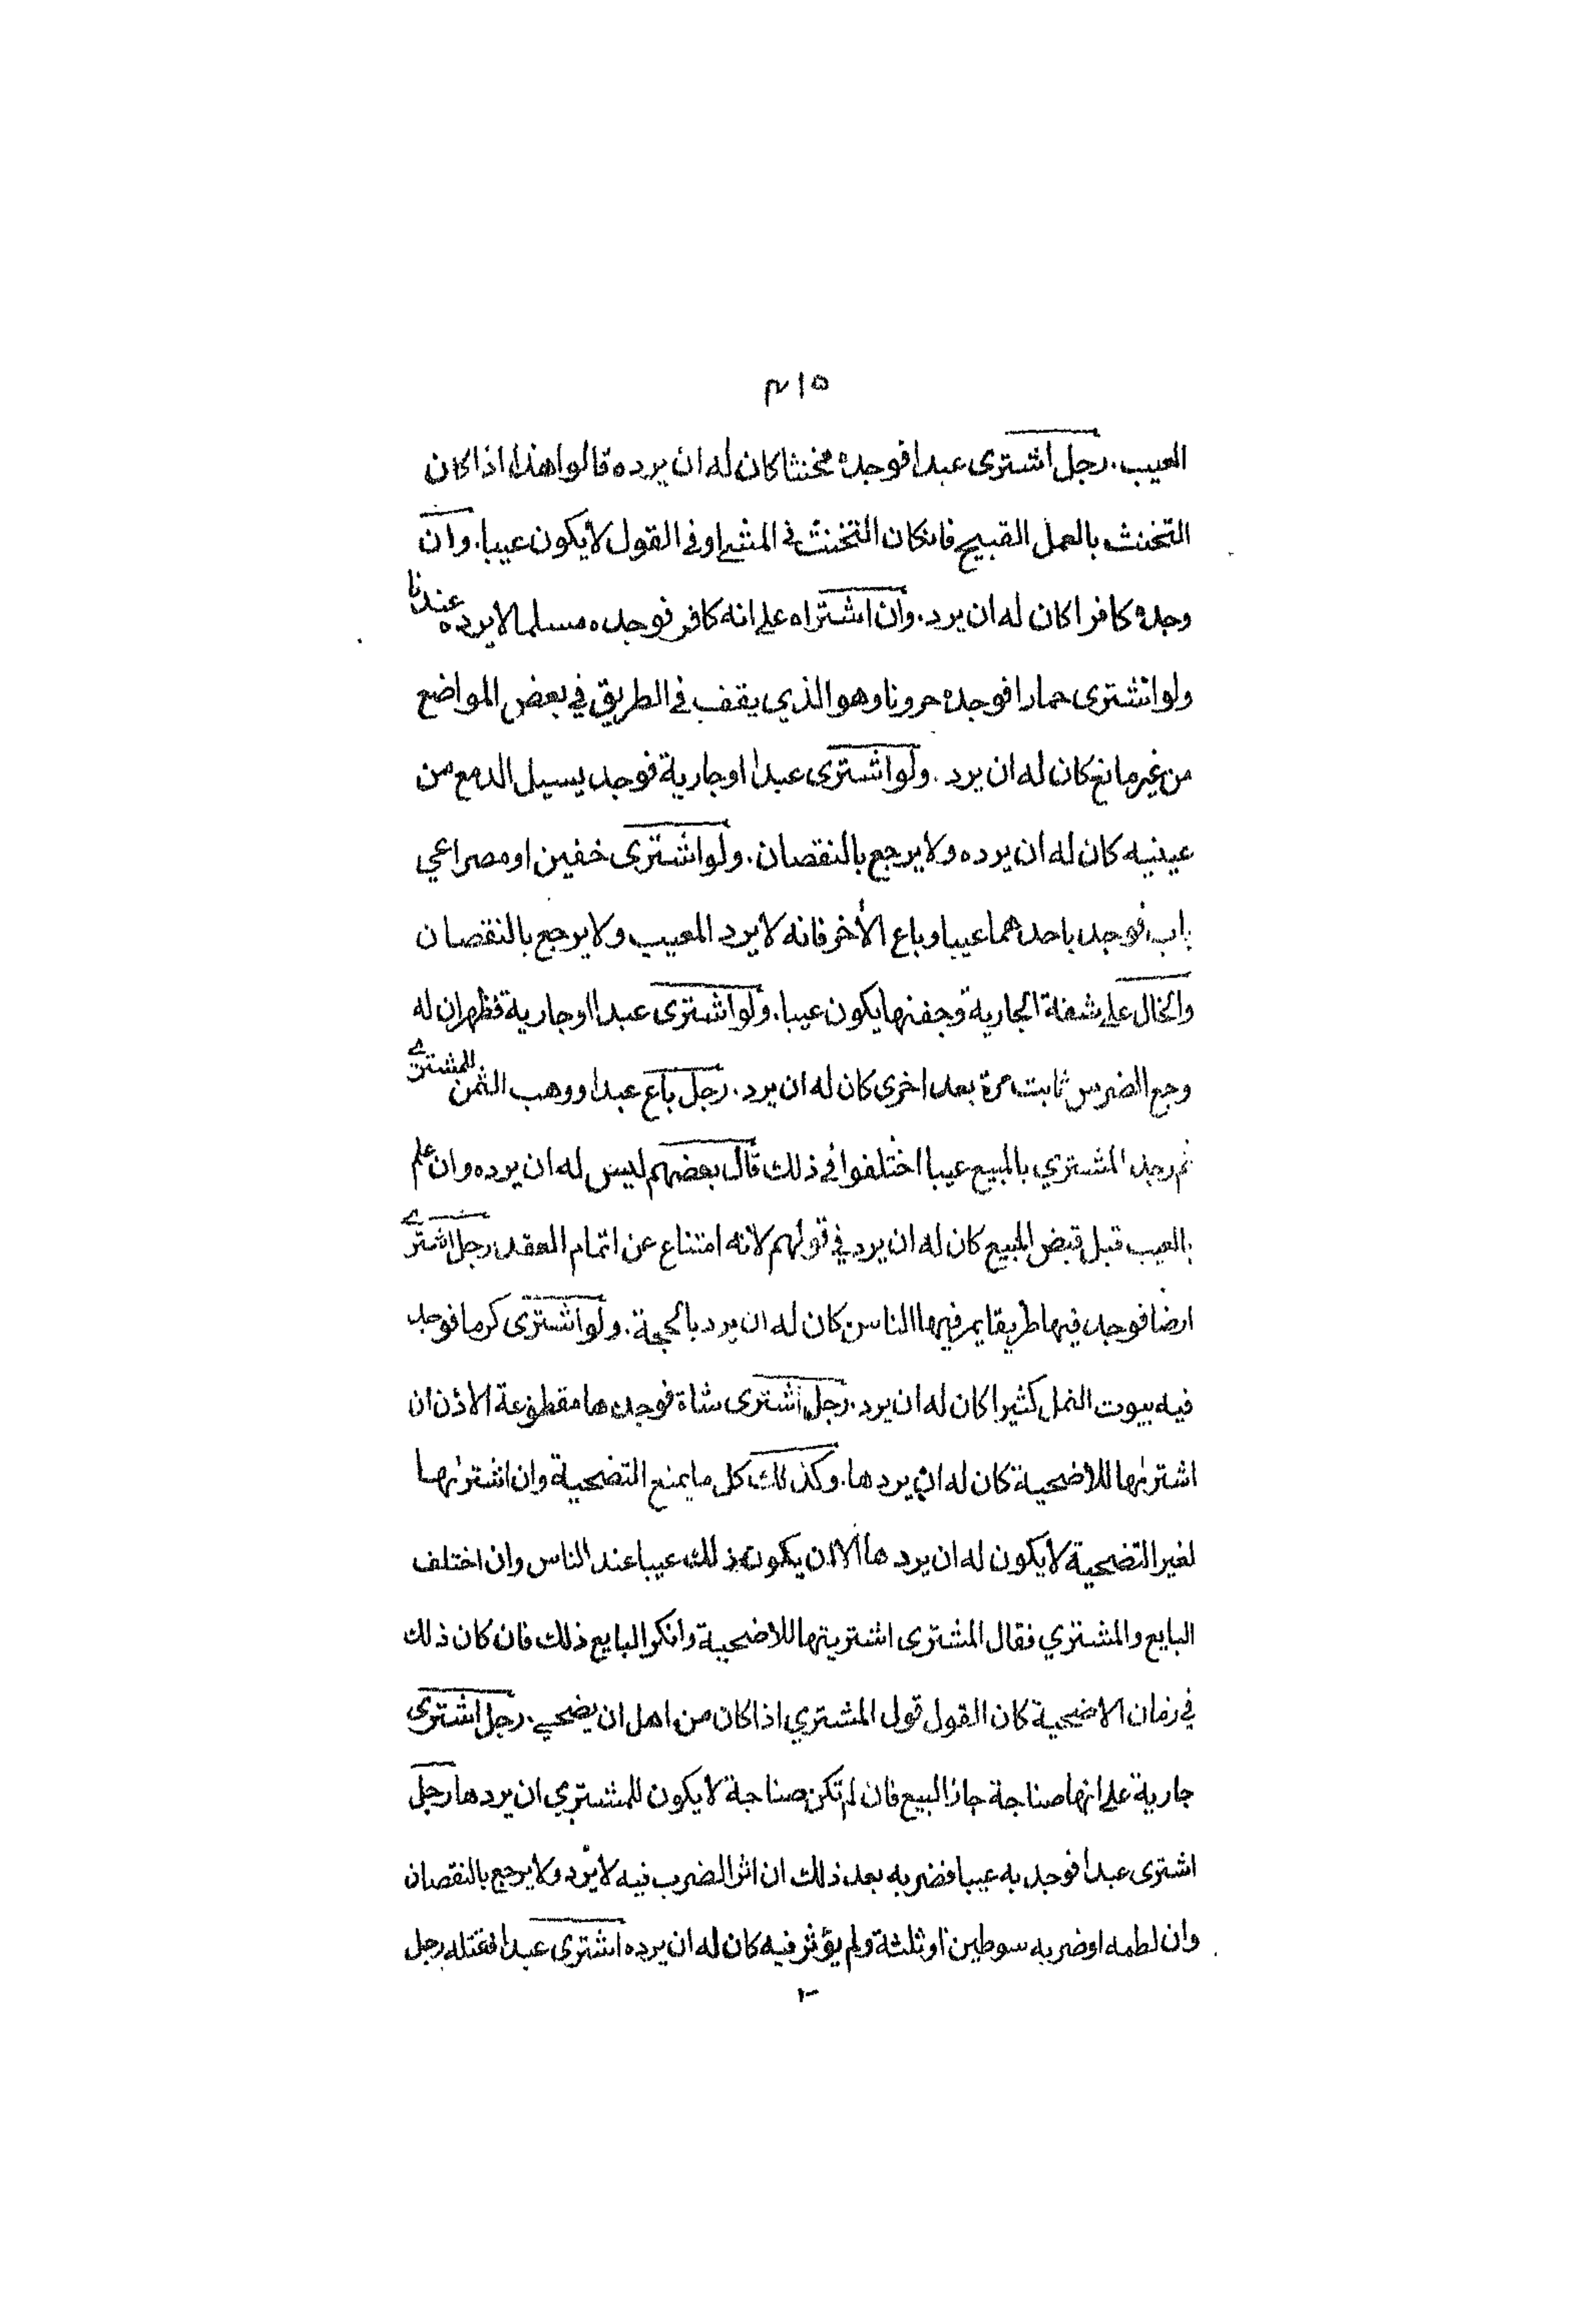 ٤١٥
العيب. رجل اشترى عبدا فوجده مخنثا كان له ان يرده قالوا هذا اذا كان
التخنث بالعمل القبيح فان كان التخنث في المشي او في القول لا يكون عيبا. وان
وجده كافرا كان له ان يرد. وان اشتراه على انه كافر فوجده مسلما لا يرده عندنا
ولو اشترى حمارا فوجده حرونا وهو الذي يقف في الطريق في بعض المواضع
من غير مانع كان له ان يرد. ولو اشترى عبدا او جارية فوجد يسيل الدمع من
عينيه كان له ان يرده ولا يرجع بالنقصان. ولو اشترى خفين او مصراعي
باب فوجد باحدهما عيبا وباع الأخر فانه لا يرد المعيب ولا يرجع بالنقصان
والخال على شفة الجارية وجفنها يكون عيبا. ولو اشترى عبدا او جارية فظهر ان له
وجع الضرس ثابت مرة بعد اخرى كان له ان يرد. رجل باع عبدا ووهب الثمن للمشتري
ثم وجد المشتري بالمبيع عيبا اختلفوا في ذلك قال بعضهم ليس له ان يرده وان علم
بالعيب قبل قبض المبيع كان له ان يرد في قولهم لانه امتناع عن اتمام العقد. رجل اشترى
ارضا فوجد فيها طريقا يمر فيها الناس كان له ان يرد بالحجة. ولو اشترى كرما فوجد
فيه بيوت النمل كثيرا كان له ان يرد. رجل اشترى شاة فوجدها مقطوعة الاذن ان
اشتريها للاضحية كان له ان يردها. وكذلك كل ما يمنع التضحية وان اشتريها
لغير التضحية لا يكون له ان يردها الا ان يكون ذلك عيبا عند الناس وان اختلف
البايع والمشتري فقال المشترى اشتريتها للاضحية وانكر البايع ذلك فان كان ذلك
في زمان الاضحية كان القول قول المشتري اذا كان من اهل ان يضحي. رجل اشترى
جارية على انها صناجة جاز البيع فان لم تكن صناجة لا يكون للمشتري ان يردها رجل
اشترى عبدا فوجد به عيبا فضربه بعد ذلك ان اثر الضرب فيه لا يرد ولا يرجع بالنقصان
وان لطمه او ضربه سوطين او ثلثة ولم يؤثر فيه كان له ان يرده اشترى عبدا فقتله رجل